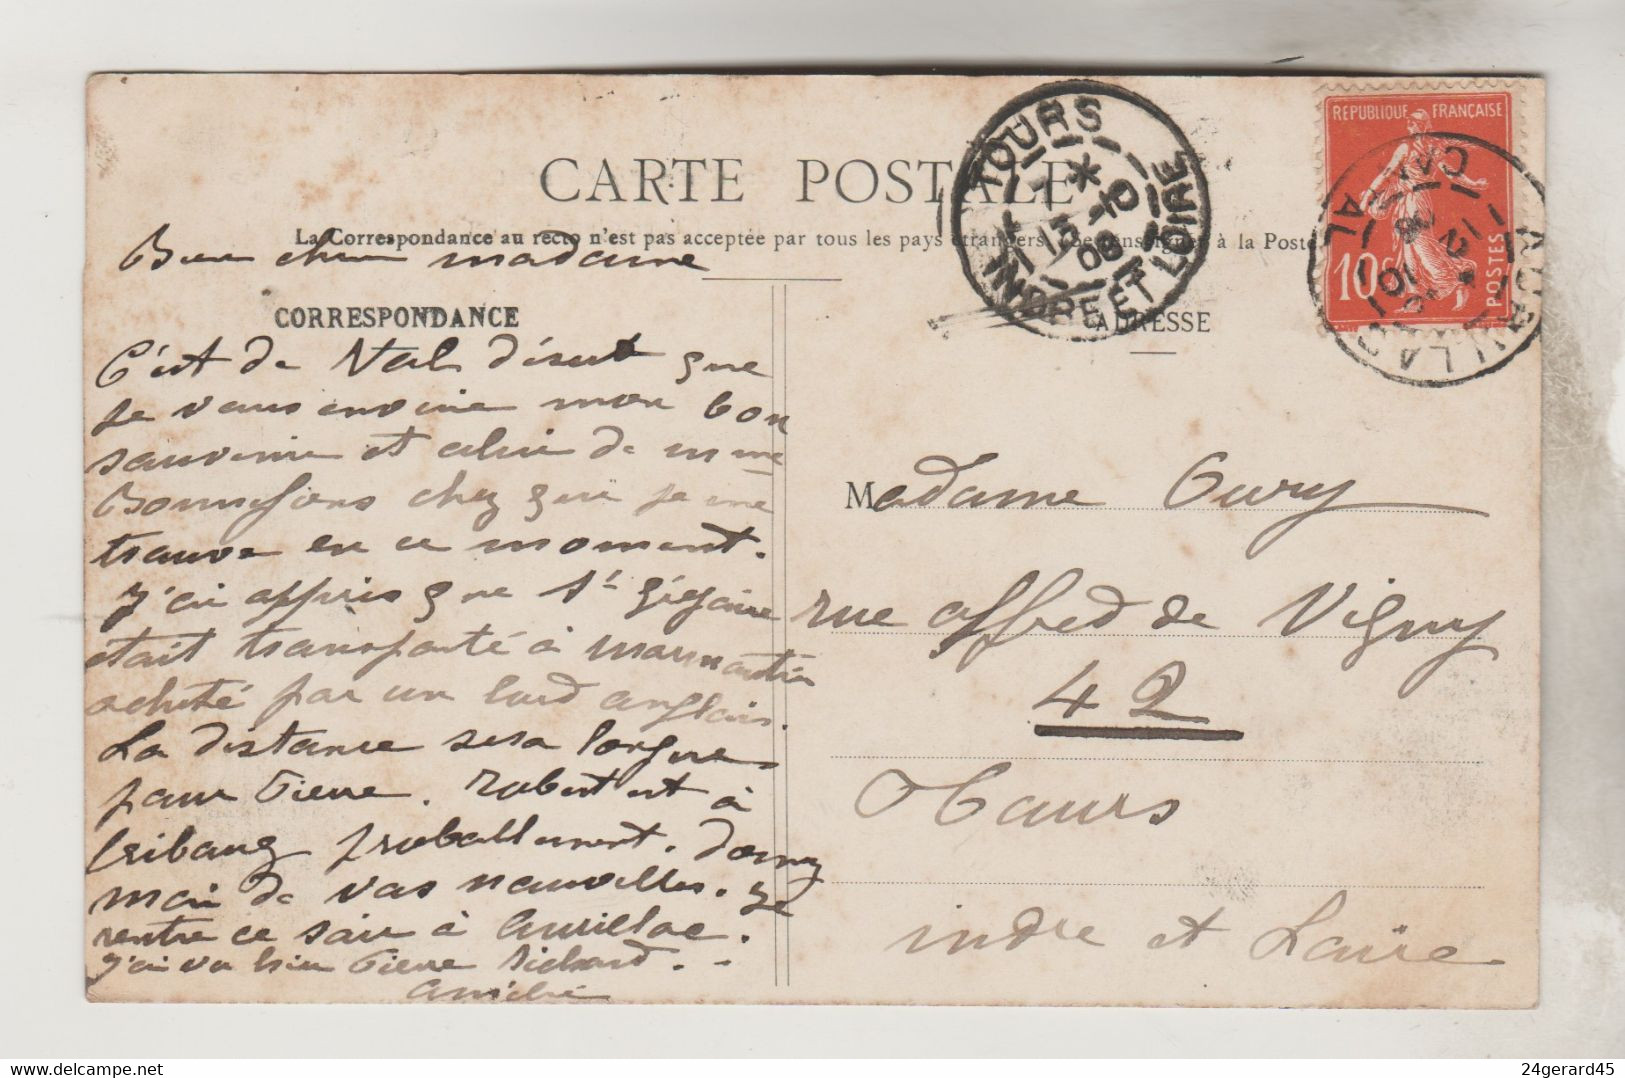 CARTE POSTALE
La Correspondance au recto n'est pas acceptée par tous les pays étrangers. Se renseigner à la Poste
Bien chère madame
CORRESPONDANCE
C'est de Val désert que
je vous envoie mon bon
souvenir et celui de mme
chez qui je me
trouve en ce moment.
J'ai appris que St Grégoire
était transporté à Marmoutier
acheté par un lord anglais.
La distance sera longue
pour Pierre. Robert est à
probablement. Donnez
moi de vos nouvelles. Je
rentre ce soir à Aurillac.
J'ai vu hier Pierre Richard.
Amitié
TOURS
7 * 15 -10 08
INDRE ET LOIRE
REPUBLIQUE FRANÇAISE
10c
POSTES
AURILLAC
CANTAL
ADRESSE
Madame Oury
rue Alfred de Vigny
42
Tours
indre et Loire
www.delcampe.net
24gerard45